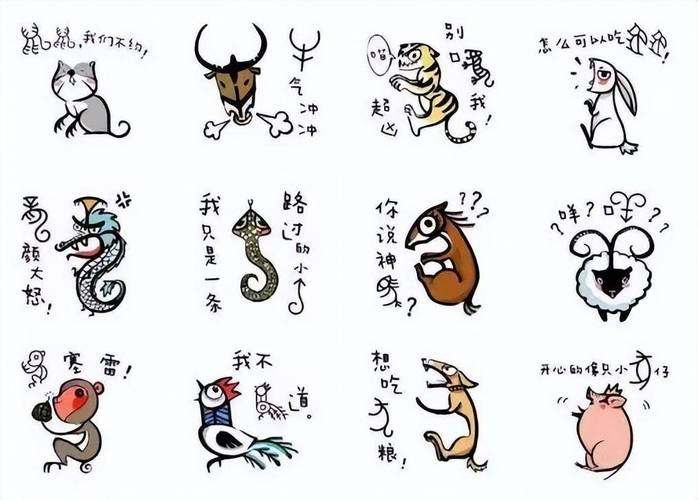 鼠鼠,我们不约!
牛气冲冲
喵
别唬我!
超凶
怎么可以吃兔兔!
龙颜大怒!
我只是一条
路过的小蛇
你说神马?
???
?咩?咩??
猴塞雷!
我不鸡道。
想吃犬粮!
开心的像只小豕仔